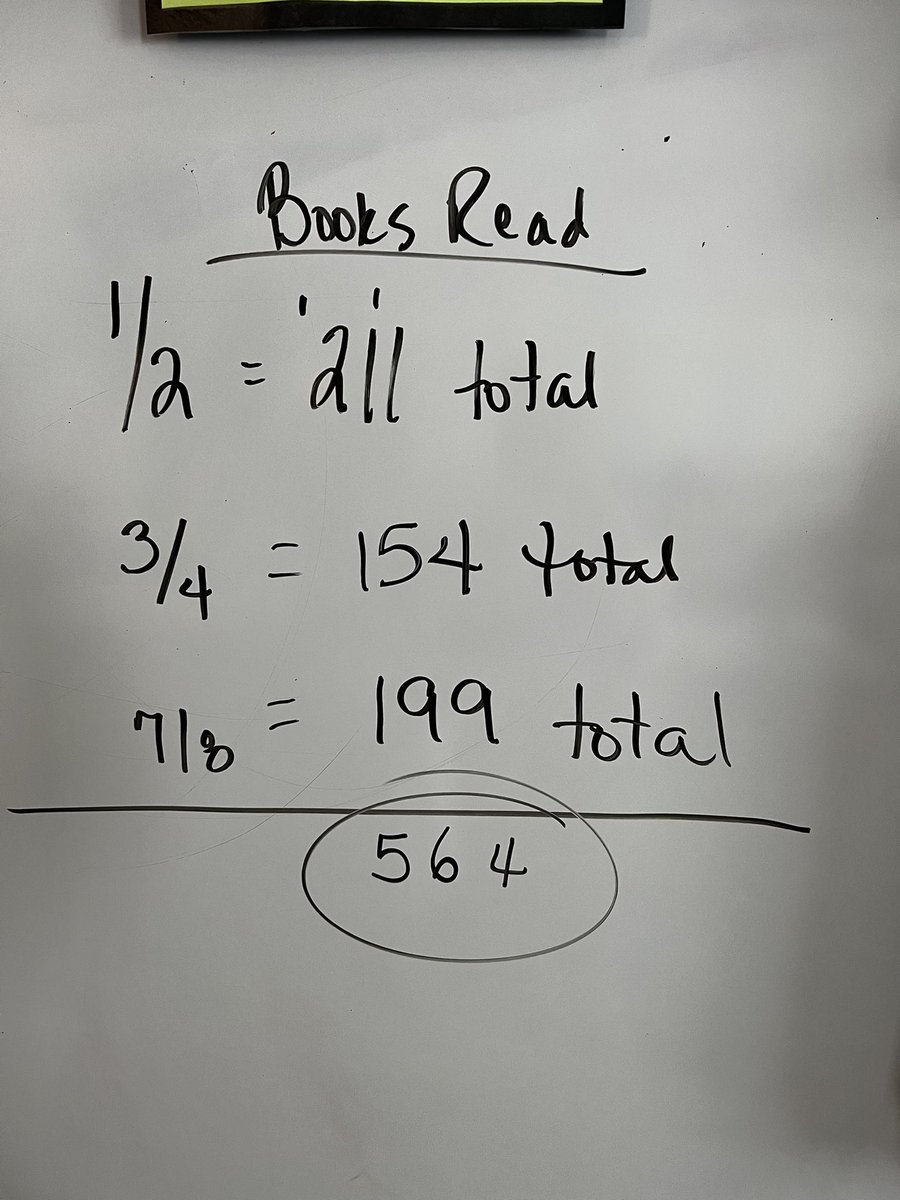 Books Read
1/2 = 211 total
3/4 = 154 total
7/8 = 199 total
564